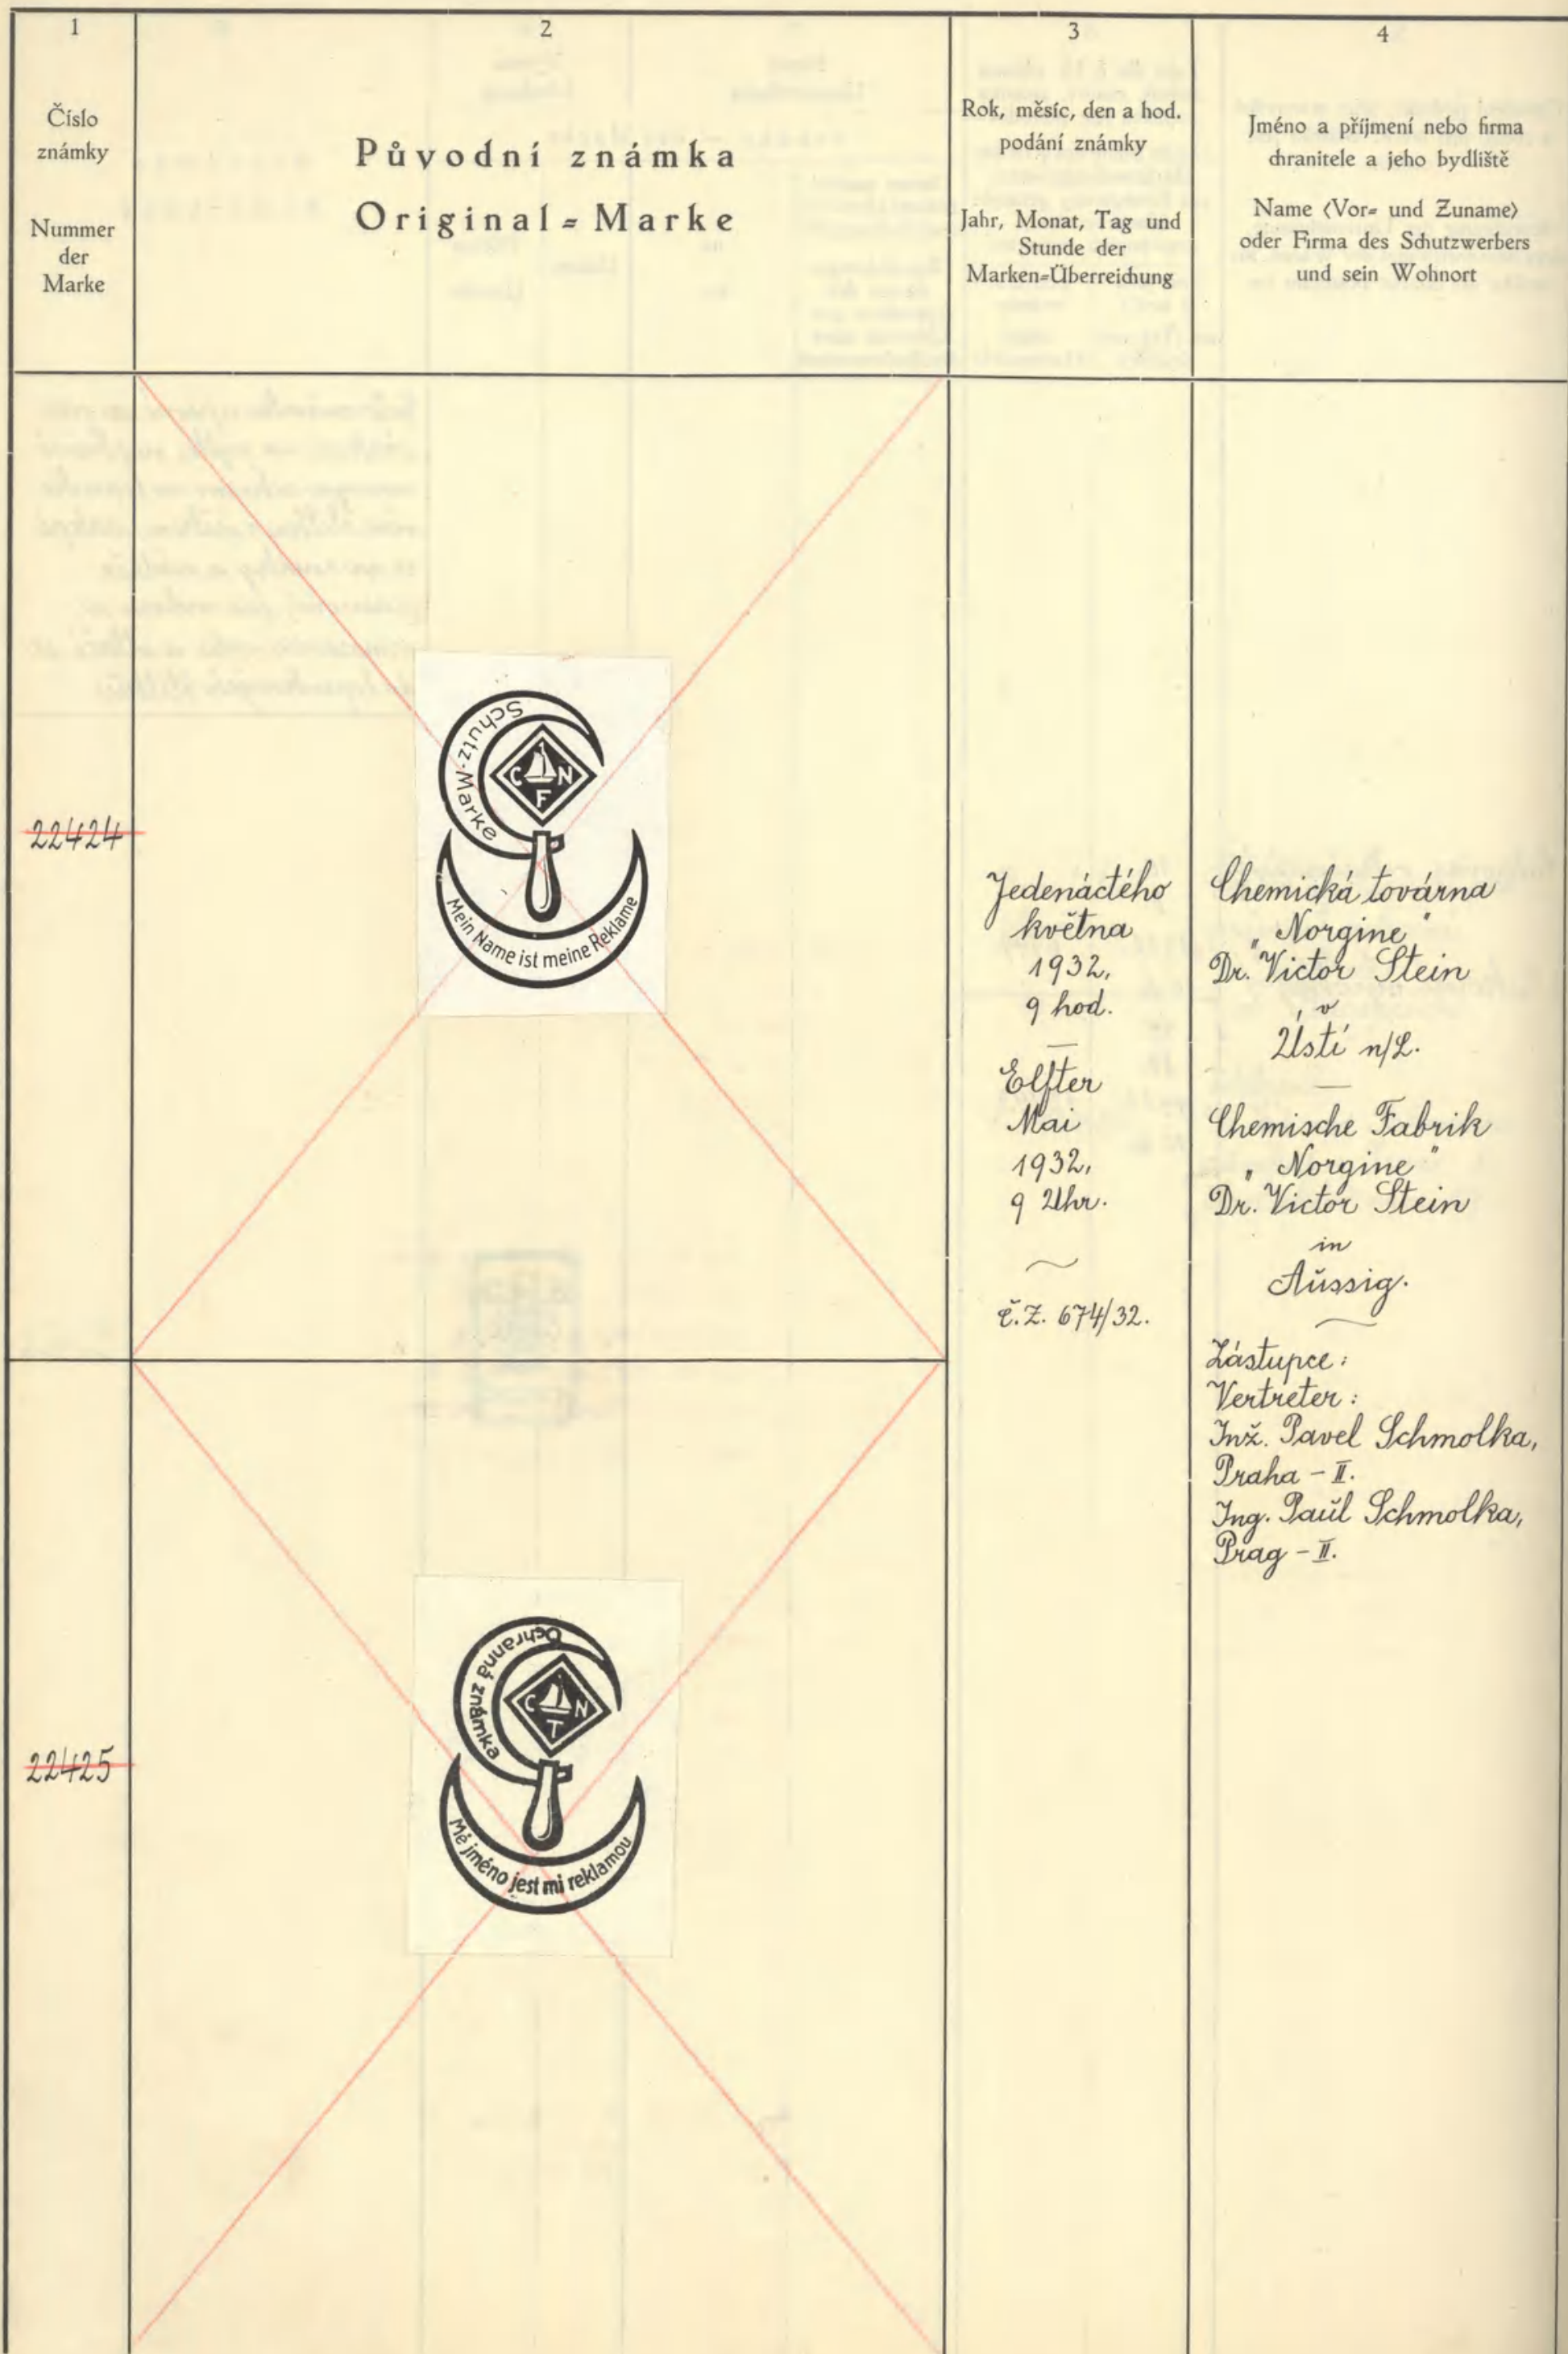 1
Číslo
známky
Nummer
der
Marke
2
Původní známka
Original=Marke
3
Rok, měsíc, den a hod.
podání známky
Jahr, Monat, Tag und
Stunde der
Marken=Überreichung
4
Jméno a příjmení nebo firma
chranitele a jeho bydliště
Name (Vor= und Zuname)
oder Firma des Schutzwerbers
und sein Wohnort
22424
Schutz-Marke
C N
F
Mein Name ist meine Reklame
Jedenáctého
května
1932,
9 hod.
—
Elfter
Mai
1932,
9 Uhr.
~
č.Z. 674/32.
Chemická továrna
„Norgine"
Dr. Victor Stein
v
Ústí n/L.
—
Chemische Fabrik
„Norgine"
Dr. Victor Stein
in
Aŭssig.
Zástupce:
Vertreter:
Inž. Pavel Schmolka,
Praha - II.
Ing. Paŭl Schmolka,
Prag - II.
22425
Ochranná známka
C N
T
Mé jméno jest mi reklamou